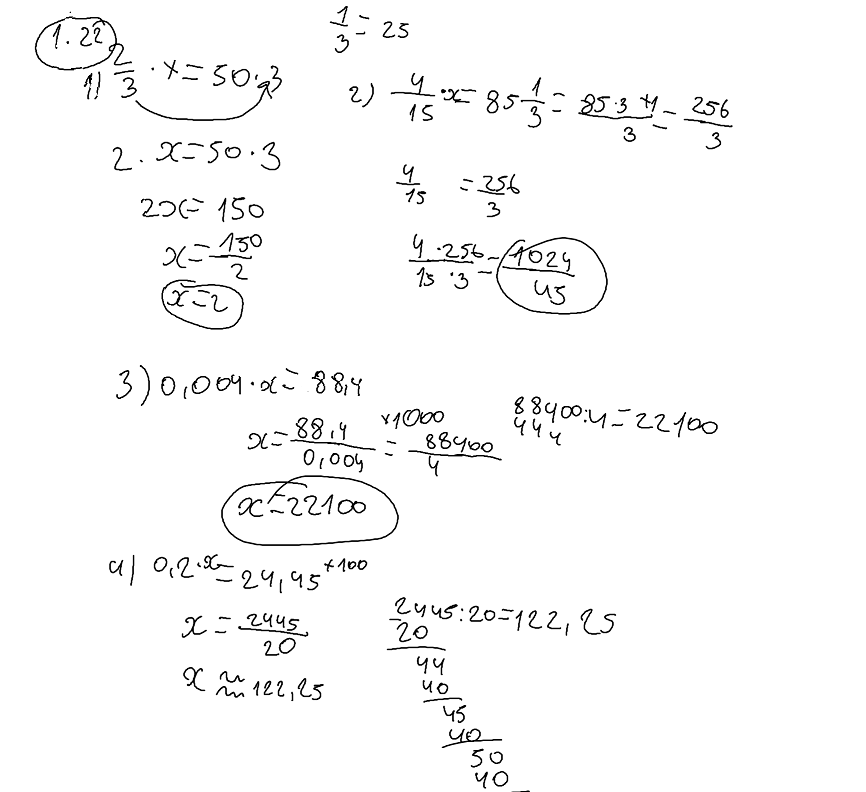 1.22
1/3 = 25
1) 2/3 · x = 50 · 3
2 · x = 50 · 3
2x = 150
x = 150/2
x = 2
2) 4/15 · x = 85 1/3 = 85·3+1/3 = 256/3
4/15 = 256/3
4·256/15·3 = 1024/45
3) 0,004 · x = 88,4
x = 88,4/0,004 ×1000 = 88400/4
88400:4 = 22100
444
x = 22100
4) 0,2·x = 24,45 ×100
x = 2445/20
x ≈ 122,25
2445:20=122,25
20
44
40
45
40
50
40